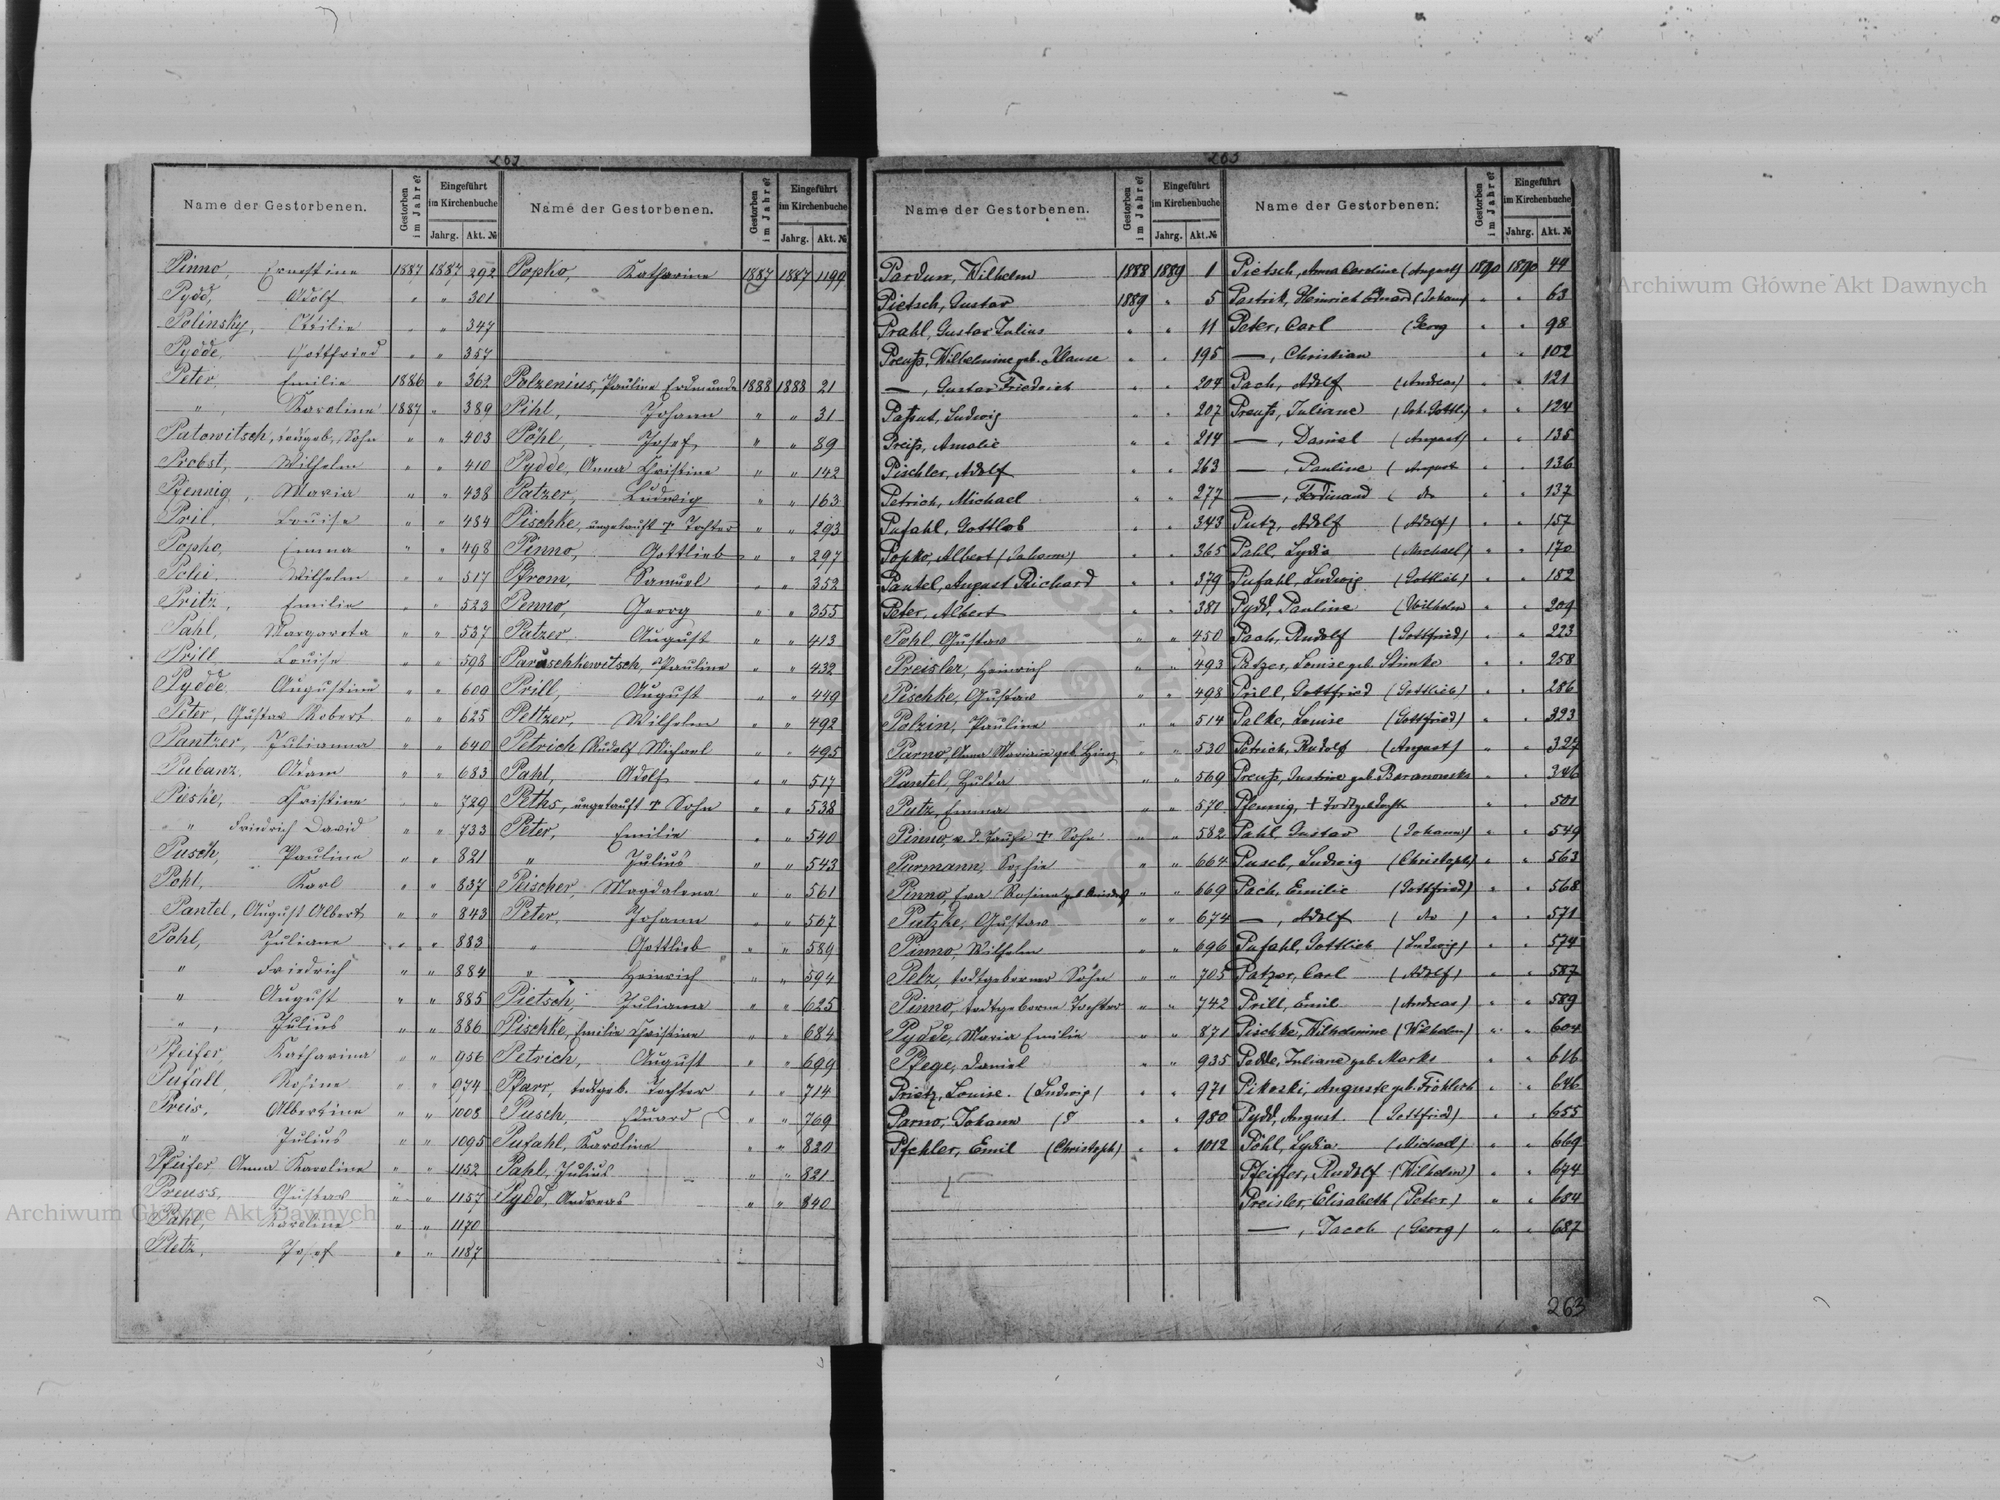 262
Name der Gestorbenen. Gestorben im Jahre? Eingeführt im Kirchenbuche Jahrg. Akt. №
Pinno, Ernestine 1887 1887 292
Pydd, Adolf " " 301
Polinsky, Ottilie " " 347
Pydde, Gottfried " " 357
Peter, Emilie 1886 " 362
" , Karoline 1887 " 389
Patowitsch, todgeb. Sohn " " 403
Probst, Wilhelm " " 410
Pfennig, Maria " " 438
Pril, Louise " " 484
Popko, Emma " " 498
Wilhelm " " 517
Pritz, Emilie " " 523
Pahl, Margareta " " 537
Prill, Louise " " 598
Pydde, Augustine " " 600
Peter, Gustav Robert " " 625
Pantzer, Julianna " " 640
Pubanz, Adam " " 683
Pieske, Christine " " 729
" Friedrich David " " 733
Pusch, Pauline " " 821
Pohl, Karl " " 837
Pantel, August Albert " " 843
Pohl, Juliane " " 883
" Friedrich " " 884
" August " " 885
" , Julius " " 886
Pfeifer, Katharina " " 956
Pufall, Rosine " " 974
Preis, Albertine " " 1008
" Julius " " 1095
Pfeifer Anna Karoline " " 1152
Preuss, Gustav " " 1157
Pahl, Karoline " " 1170
Josef " " 1187
Name der Gestorbenen. Gestorben im Jahre? Eingeführt im Kirchenbuche Jahrg. Akt. №
Popko, Katharine 1887 1887 1199
Polzenius, Pauline Erdmunde 1888 1888 21
Pihl, Johann " " 31
Pöhl, Josef " " 89
Pydde, Anna Christine " " 142
Patzer, Ludwig " " 163
Pischke, ungetauft † Tochter " " 293
Pinno, Gottlieb " " 297
Pfrom, Samuel " " 352
Penno, Georg " " 355
Patzer August " " 413
Paraschkewitsch, Pauline " " 432
Prill, August " " 449
Peltzer, Wilhelm " " 492
Petrich Rudolf Michael " " 495
Pahl, Adolf " " 517
Peths, ungetauft † Sohn " " 538
Peter, Emilie " " 540
" Julius " " 543
Peischer, Magdalena " " 561
Peter, Johann " " 567
" Gottlieb " " 589
" Heinrich " " 594
Pietsch, Julianna " " 625
Pischke, Emilie Christine " " 684
Petrich, August " " 699
Pfarr, todtgeb. Tochter " " 714
Pusch, Eduard " " 769
Pufahl, Karoline " " 820
Pahl, Julius " " 821
Pydd, Andreas " " 840
263
Name der Gestorbenen. Gestorben im Jahre? Eingeführt im Kirchenbuche Jahrg. Akt. №
Pardun, Wilhelm 1888 1889 1
Pietsch, Gustav 1889 " 5
Prahl, Gustav Julius " " 11
Preuß, Wilhelmine geb. Klause " " 195
—, Gustav Friedrich " " 204
Ludwig " " 207
Preiß, Amalie " " 214
Pischler, Adolf " " 263
Petrich, Michael " " 277
Pufahl, Gottlob " " 343
Popko, Albert (Johann) " " 365
Pantel, August Richard " " 379
Peter, Albert " " 381
Pohl Gustaw " " 450
Preisler, Heinrich " " 493
Pischke, Gustaw " " 498
Polzin, Pauline " " 514
Parno, Anna Mariane geb. Hinz " " 530
Pantel, Hulda " " 569
Putz, Emma " " 570
Pinno, v. d. Taufe † Sohn " " 582
Purmann, Sophie " " 664
Pinno, Ewa Rosine geb. " " 669
Putzke, Gustaw " " 674
Pinno, Wilhelm " " 696
Pelz, todtgeborner Sohn " " 705
Pinno, todtgeborne Tochter " " 742
Pydde, Maria Emilie " " 871
Pfege, Daniel " " 935
Prietz, Louise. (Ludwig) " " 971
Parno, Johann " " 980
Pfehler, Emil (Christoph) " " 1012
Name der Gestorbenen. Gestorben im Jahre? Eingeführt im Kirchenbuche Jahrg. Akt. №
Pietsch, Anna Caroline (August) 1890 1890 44
Pastrik, Heinrich Eduard (Johann) " " 63
Peter, Carl (Georg " " 98
—, Christian " " 102
Pach, Adolf (Andreas) " " 121
Preuß, Juliane (Joh. Gottl.) " " 124
—, Daniel (August) " " 135
—, Pauline (August " " 136
—, Ferdinand ( do " " 137
Putz, Adolf (Adolf) " " 157
Pahl, Lydia (Michael) " " 170
Pufahl, Ludwig (Gottlieb) " " 182
Pydd, Pauline (Wilhelm " " 209
Pach, Rudolf (Gottfried) " " 223
Patzer, Louise geb. Stimke " " 258
Prill, Gottfried (Gottlieb) " " 286
Palke, Louise (Gottfried) " " 323
Petrich, Rudolf (August) " " 327
Preuß, Justine geb. Baranowska " " 346
Pfennig, † " " 501
Pahl, Gustav (Johann) " " 549
Pusch, Ludwig (Christoph) " " 563
Pach, Emilie (Gottfried) " " 568
—, Adolf ( do ) " " 571
Pufahl, Gottlieb (Ludwig) " " 574
Patzer, Carl (Adolf) " " 587
Prill, Emil (Andreas) " " 589
Pischke, Wilhelmine (Wilhelm) " " 604
Podde, Juliane geb. Marks " " 616
Pikoski, Auguste geb. Fröhlich " " 646
Pydd, August (Gottfried) " " 655
Pöhl, Lydia (Michael) " " 669
Pfeiffer, Rudolf (Wilhelm) " " 674
Preisler, Elisabeth (Peter) " " 684
—, Jacob (Georg) " " 687
263
Archiwum Główne Akt Dawnych
Archiwum Główne Akt Dawnych